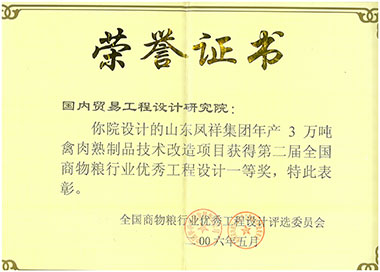 荣誉证书
国内贸易工程设计研究院：
你院设计的山东凤祥集团年产 3 万吨
禽肉熟制品技术改造项目获得第二届全国
商物粮行业优秀工程设计一等奖，特此表
彰。
全国商物粮行业优秀工程设计评选委员会
二00六年五月